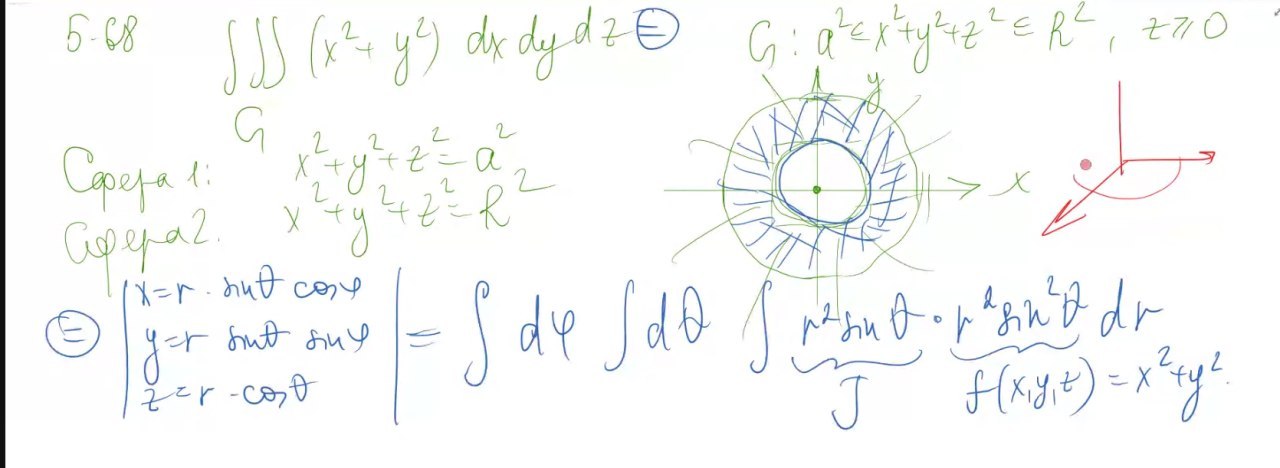 5.68 ∭ (x²+ y²) dx dy dz ⊜ G : a² ≤ x²+y²+z² ≤ R² , z ≥ 0
G
y
x
Сфера 1: x²+y²+z²=a²
Сфера 2. x²+y²+z²=R²
⊜ | x=r · sinθ cosφ
y=r sinθ sinφ
z=r · cosθ | = ∫ dφ ∫ dθ ∫ r² sin θ · r² sin²θ dr
J f(x,y,z) = x²+y².